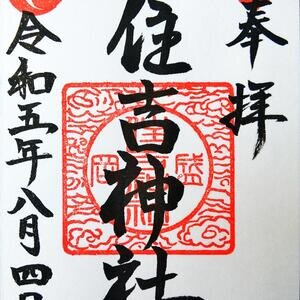 奉拝
住吉神社
令和五年八月四日
盛岡